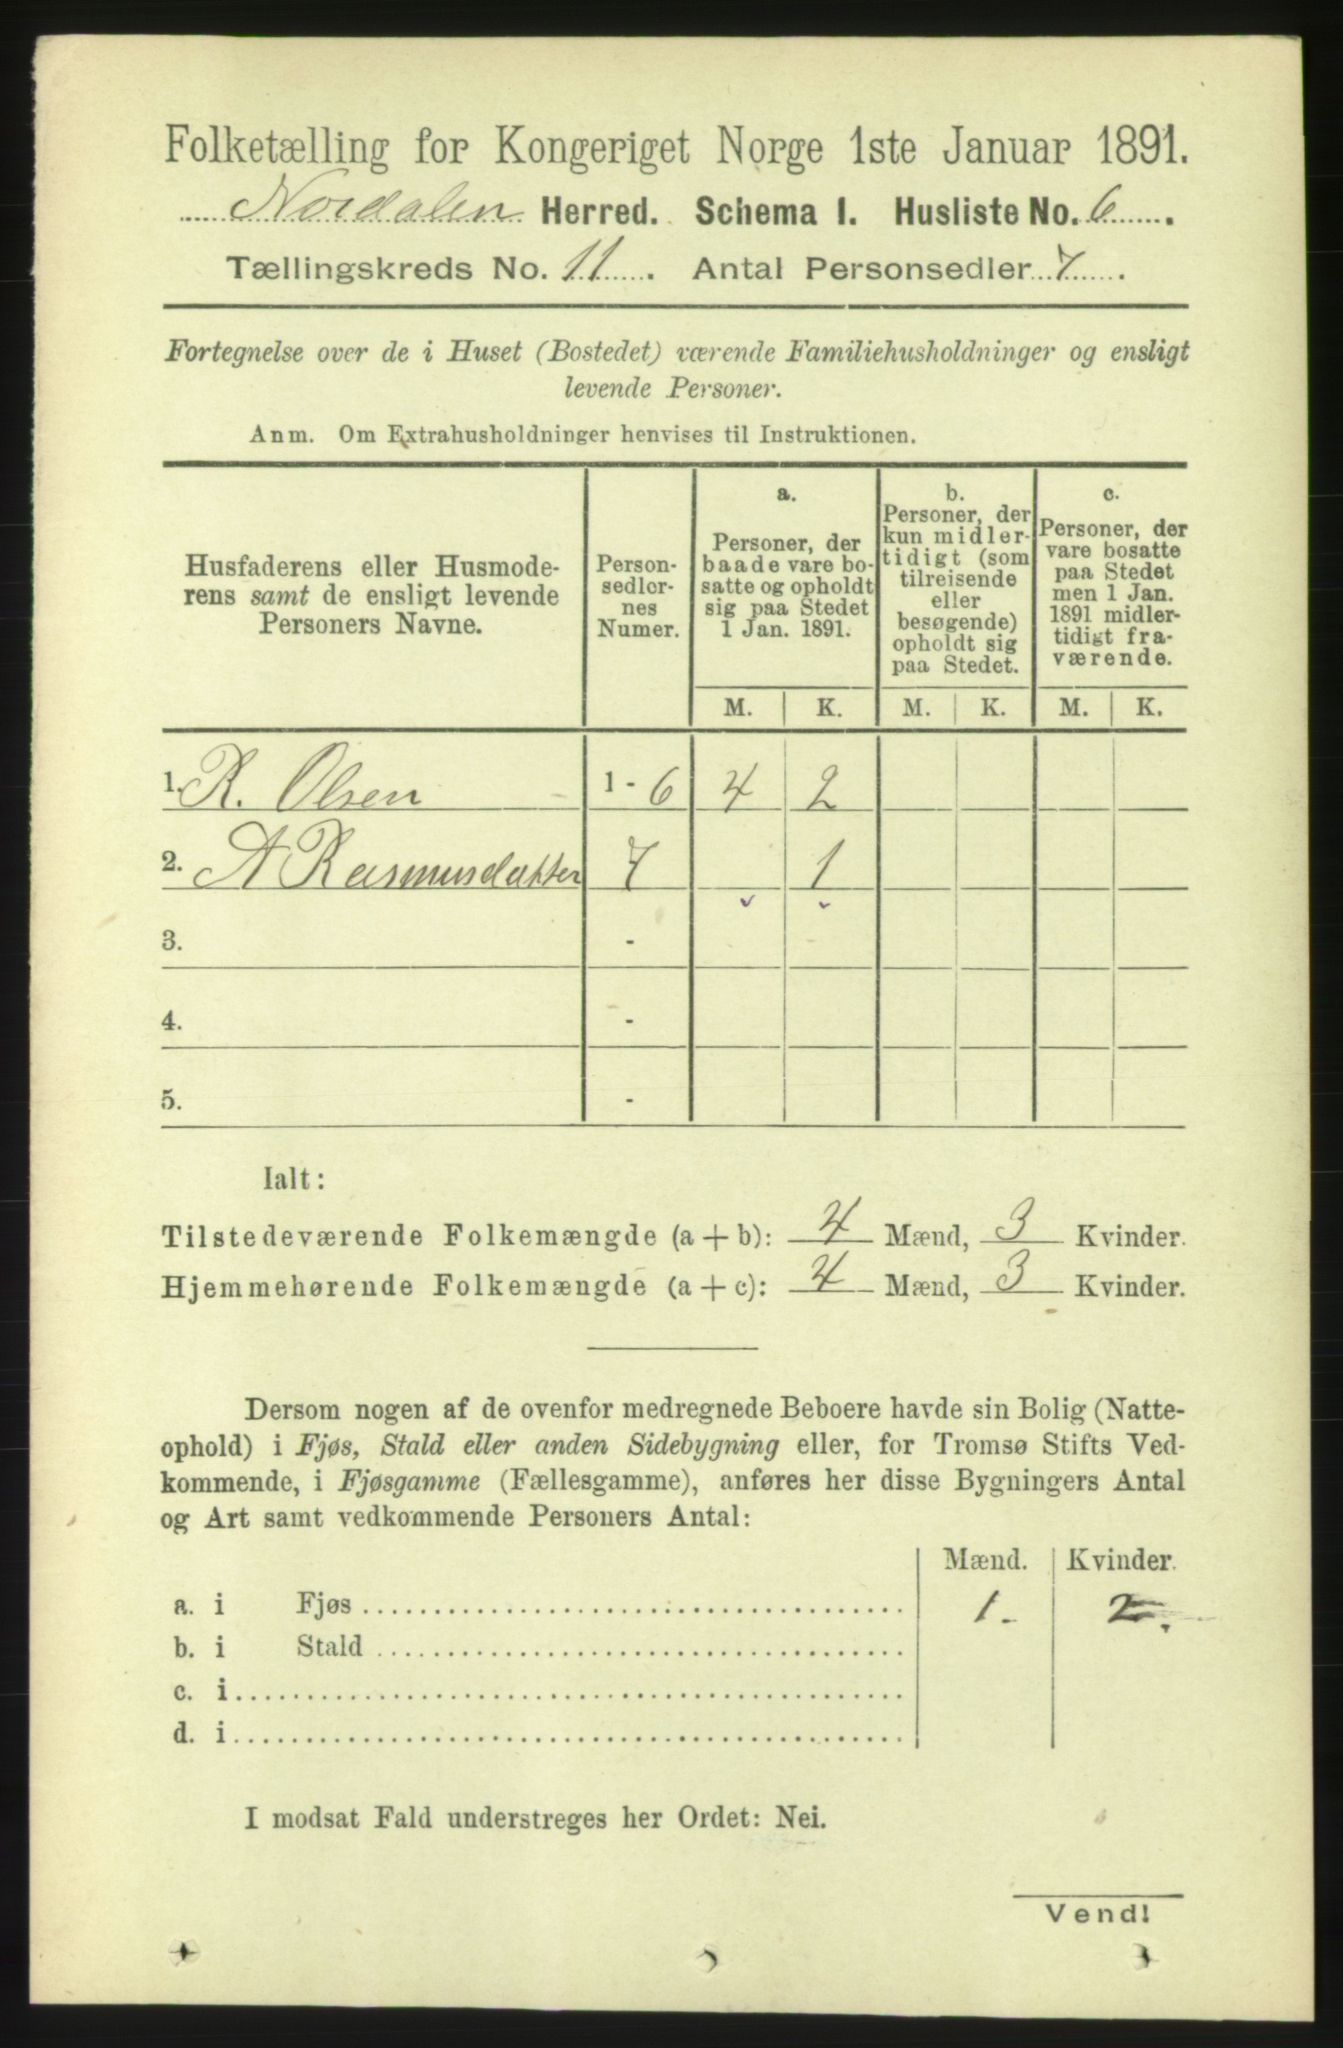 Folketælling for Kongeriget Norge 1ste Januar 1891.
Nordalen Herred. Schema I. Husliste No. 6.
Tællingskreds No. 11. Antal Personsedler 7.
Fortegnelse over de i Huset (Bostedet) værende Familiehusholdninger og ensligt
levende Personer.
Anm. Om Extrahusholdninger henvises til Instruktionen.
Husfaderens eller Husmode-
rens samt de ensligt levende
Personers Navne.
Person-
sedler-
nes
Numer.
a.
Personer, der
baade vare bo-
satte og opholdt
sig paa Stedet
1 Jan. 1891.
b.
Personer, der
kun midler-
tidigt (som
tilreisende
eller
besøgende)
opholdt sig
paa Stedet.
c.
Personer, der
vare bosatte
paa Stedet
men 1 Jan.
1891 midler-
tidigt fra-
værende.
M. K. M. K. M. K.
1. R. Olsen 1 - 6 4 2
2. A Rasmusdatter 7 1
3. -
4. -
5. -
Ialt:
Tilstedeværende Folkemængde (a + b): 4 Mænd, 3 Kvinder.
Hjemmehørende Folkemængde (a + c): 4 Mænd, 3 Kvinder.
Dersom nogen af de ovenfor medregnede Beboere havde sin Bolig (Natte-
ophold) i Fjøs, Stald eller anden Sidebygning eller, for Tromsø Stifts Ved-
kommende, i Fjøsgamme (Fællesgamme), anføres her disse Bygningers Antal
og Art samt vedkommende Personers Antal:
Mænd. Kvinder.
a. i Fjøs 1. 2.
b. i Stald
c. i
d. i
I modsat Fald understreges her Ordet: Nei.
Vend!